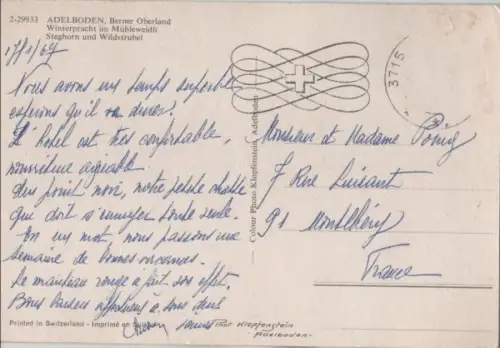 2-29933 ADELBODEN, Berner Oberland
Winterpracht im Mühleweidli
Steghorn und Wildstrubel
Nous avons un temps superbe
espérons qu'il va durer!
L'hôtel est très confortable,
nourriture agréable.
Un point noir, notre petite chatte
qui doit s'ennuyer toute seule.
En un mot, nous passons une
semaine de bonnes vacances.
Le manteau rouge a fait son effet.
Bons baisers affectueux à tous deux
Printed in Switzerland - Imprimé en
Colour Photo Klopfenstein, Adelboden
3715
Monsieur et Madame
7 Rue Luisant
91 Montlhéry
France
Klopfenstein
Adelboden